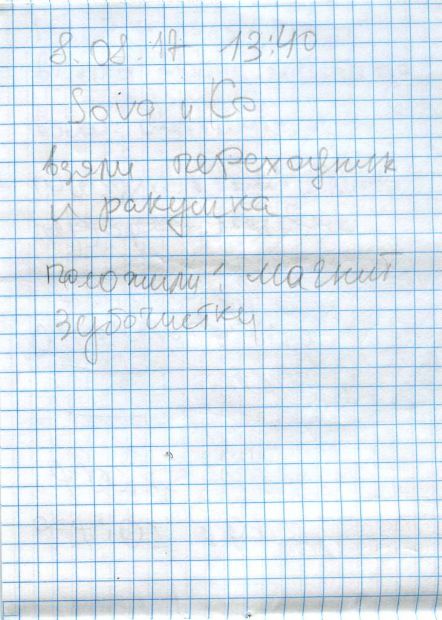 8.08.17 13:40
Sova и Co
взяли переходник
и ракушка
положили: магнит
зубочистки